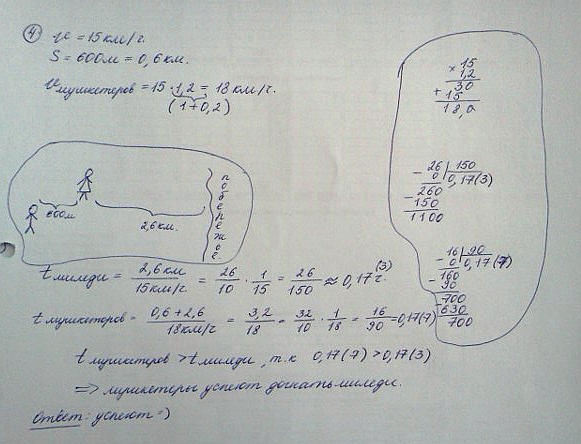 4) v = 15 км/г.
S = 600м = 0,6 км.
Vмушкетеров = 15 · 1,2 = 18 км/г.
(1+0,2)
600м
2,6 км.
побережье
t миледи = 2,6 км / 15 км/г = 26/10 · 1/15 = 26/150 ≈ 0,17(3) г.
t мушкетеров = 0,6 + 2,6 / 18 км/г = 3,2/18 = 32/10 · 1/18 = 16/90 = 0,17(7)
t мушкетеров > t миледи, т.к 0,17(7) > 0,17(3)
=> мушкетеры успеют догнать миледи.
Ответ: успеют =)
× 15
1,2
30
+ 15
18,0
- 26 | 150
0 | 0,17(3)
260
- 150
1100
- 16 | 90
0 | 0,17(7)
- 160
90
- 700
630
700